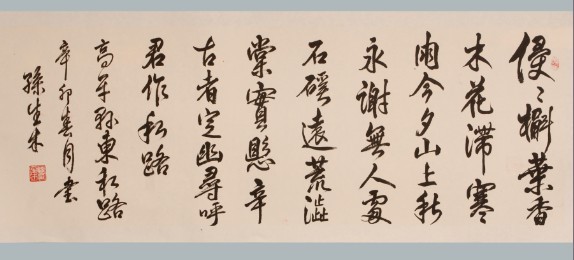 侵〻槲葉香
木花滯寒
雨今夕山上秋
永謝無人處
石磎遠荒澁
棠實懸辛
古者定幽尋呼
君作私路
高平縣東私路
辛卯春月書
孫生